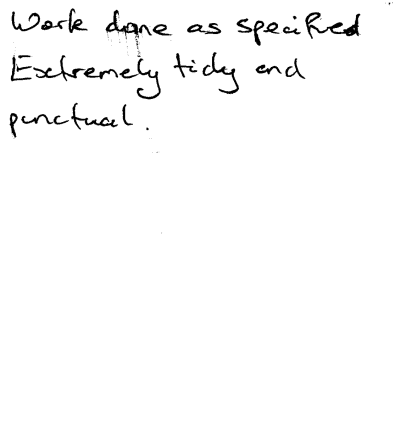 Work done as specified
Extremely tidy and
punctual.